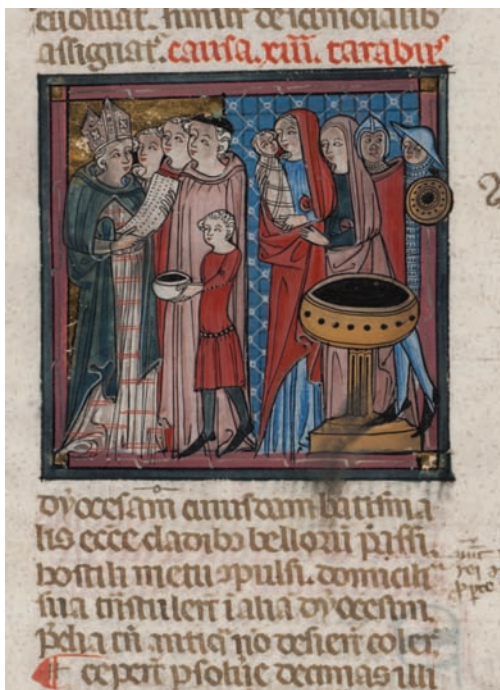 de
assignat̄. causa. xiii.
dyocesani cuiusdam batisma
lis ecc̄e cladib; belloꝝ p̄ssi.
hostili metu ↄpulsi. domicili
sua tnstulert̄ ī alia dyocesim.
p̄dia tn̄ antiq̄ nō desiert̄ coler̄.
ceper̄t ꝑsolūe decimas illi